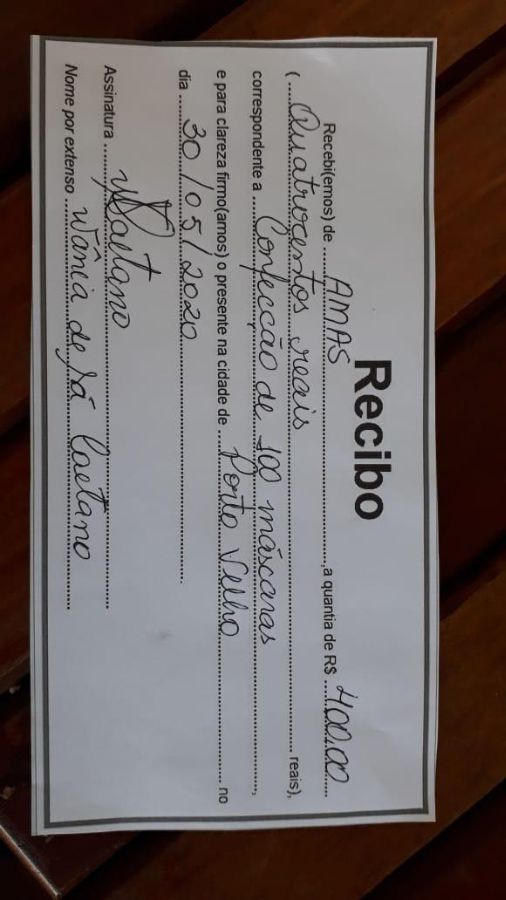 Recibo
Recebi(emos) de AMAS, a quantia de R$ 400,00
(Quatrocentos reais reais),
correspondente a Confecção de 100 máscaras,
e para clareza firmo(amos) o presente na cidade de Porto Velho no
dia 30/05/2020
Assinatura WSCaetano
Nome por extenso Wânia de Sá Caetano